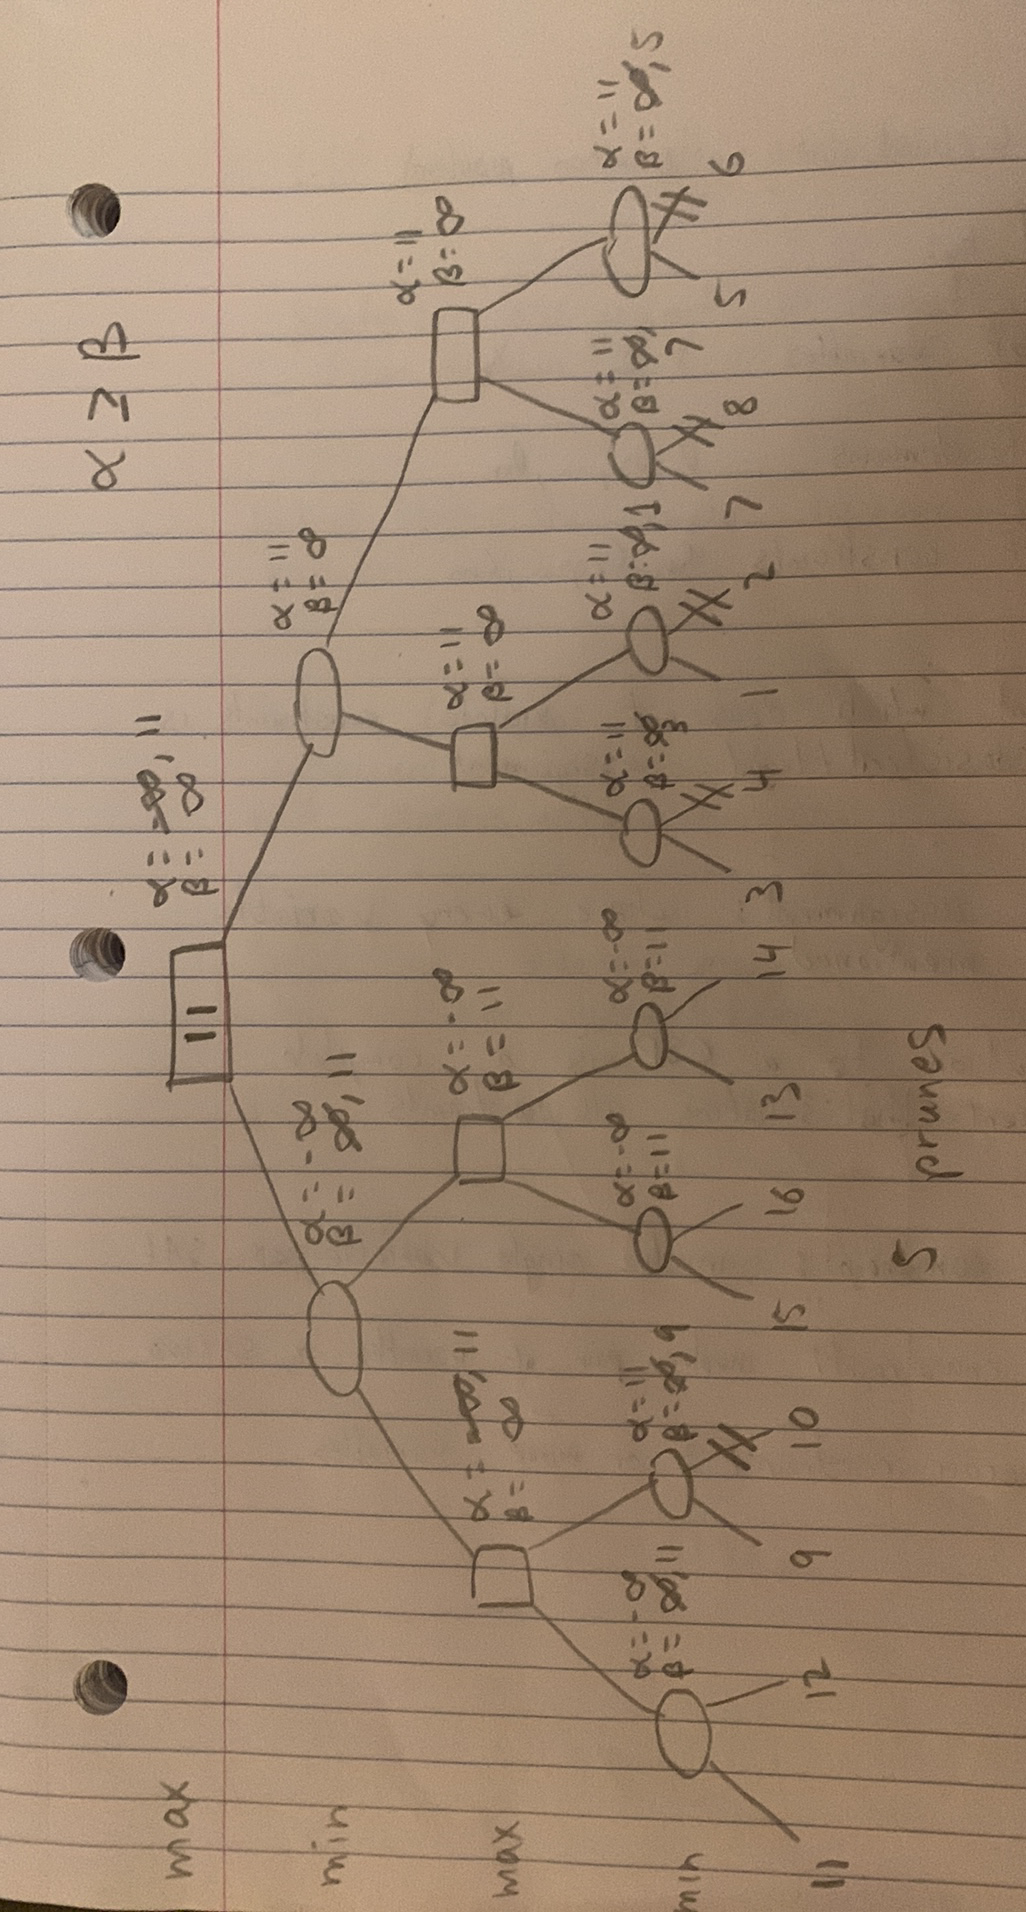 α ≥ β
max
11
α = -∞, 11
β = ∞
min
α = -∞
β = ∞, 11
α = 11
β = ∞
max
α = -∞, 11
β = ∞
α = -∞
β = 11
α = 11
β = ∞
α = 11
β = ∞
min
α = -∞
β = ∞, 11
α = 11
β = ∞, 9
α = -∞
β = 11
α = -∞
β = 11
α = 11
β = ∞ 3
α = 11
β = ∞, 1
α = 11
β = ∞, 7
α = 11
β = ∞, 5
11 12 9 10 15 16 13 14 3 4 1 2 7 8 5 6
5 prunes